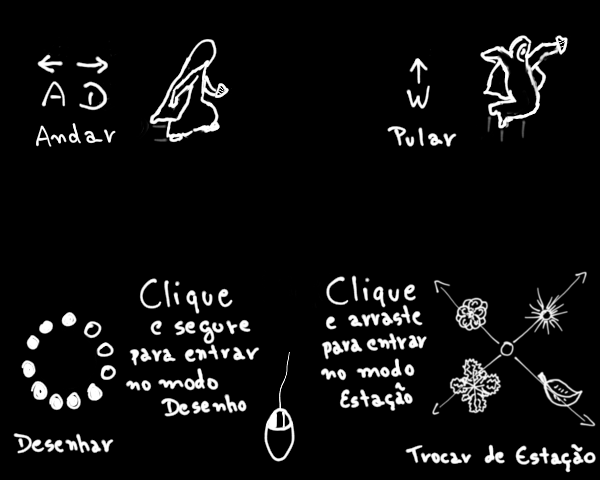 A D
Andar
W
Pular
Clique
e segure
para entrar
no modo
Desenho
Desenhar
Clique
e arraste
para entrar
no modo
Estação
Trocar de Estação